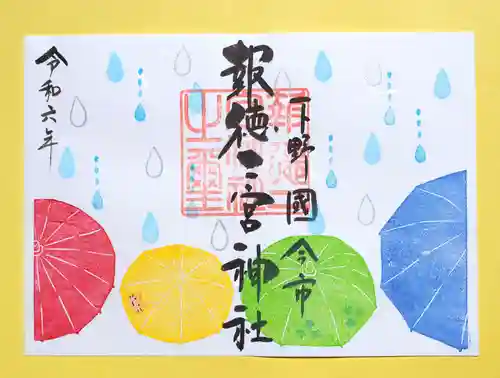 下野國 今市
報徳二宮神社
令和六年